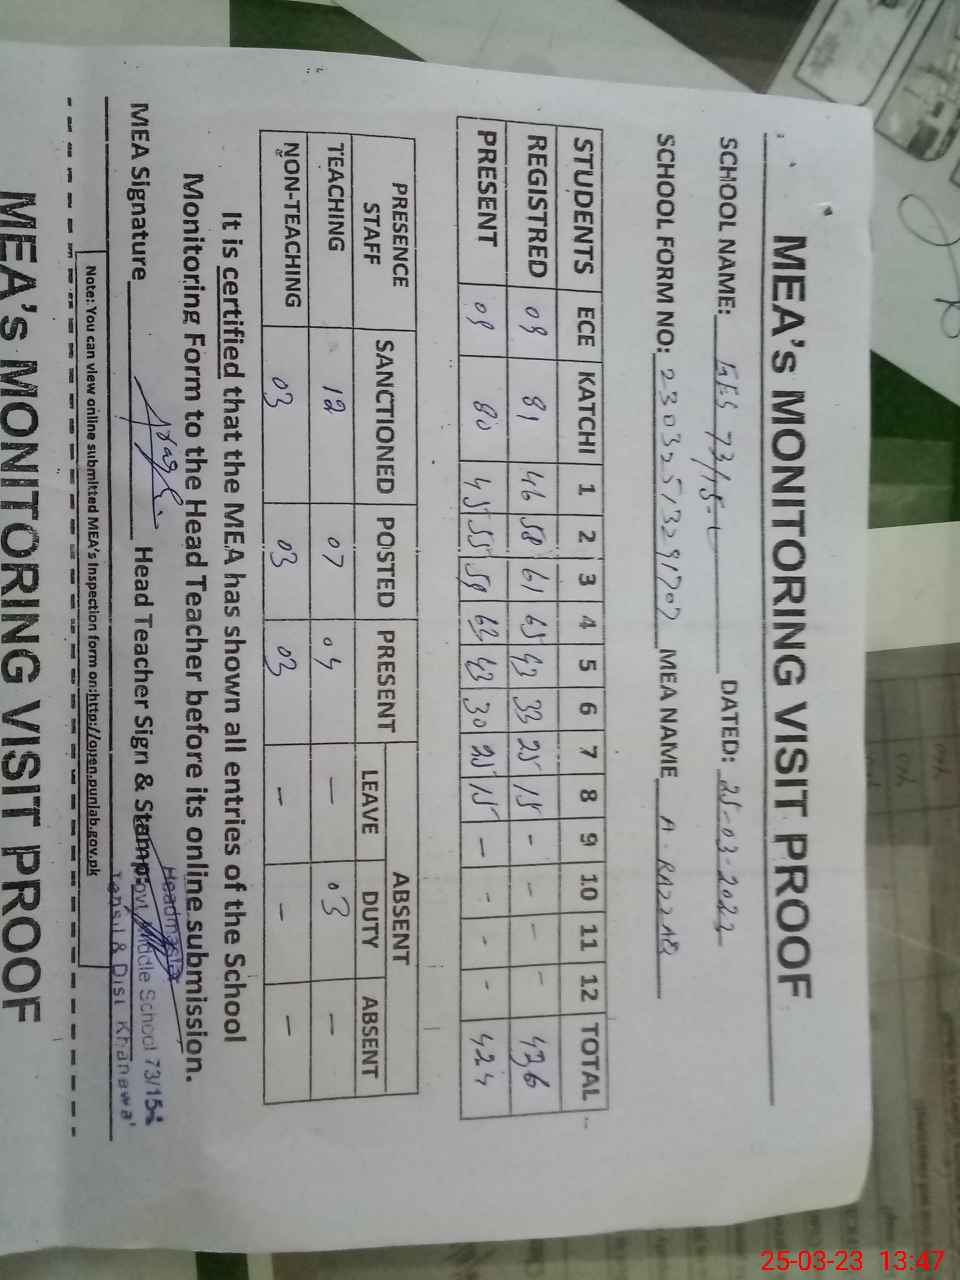 MEA's MONITORING VISIT PROOF
SCHOOL NAME: 73/15-L DATED: 25-03-2023
SCHOOL FORM NO: 2303257329170? MEA NAME A. RAZZAQ
STUDENTS ECE KATCHI 1 2 3 4 5 6 7 8 9 10 11 12 TOTAL
REGISTRED 09 81 46 58 61 65 43 33 25 15 - - - - 436
PRESENT 09 80 45 55 59 63 43 30 25 15 - - - - 424
PRESENCE STAFF SANCTIONED POSTED PRESENT ABSENT
LEAVE DUTY ABSENT
TEACHING 12 07 04 — 03 —
NON-TEACHING 03 03 03 — — —
It is certified that the MEA has shown all entries of the School
Monitoring Form to the Head Teacher before its online submission.
MEA Signature Head Teacher Sign & Stamp:
Headmaster
Govt. Middle School 73/15-L
Tehsil & Dist Khanewal
Note: You can view online submitted MEA's Inspection form on:http://open.punjab.gov.pk
MEA's MONITORING VISIT PROOF
25-03-23 13:47